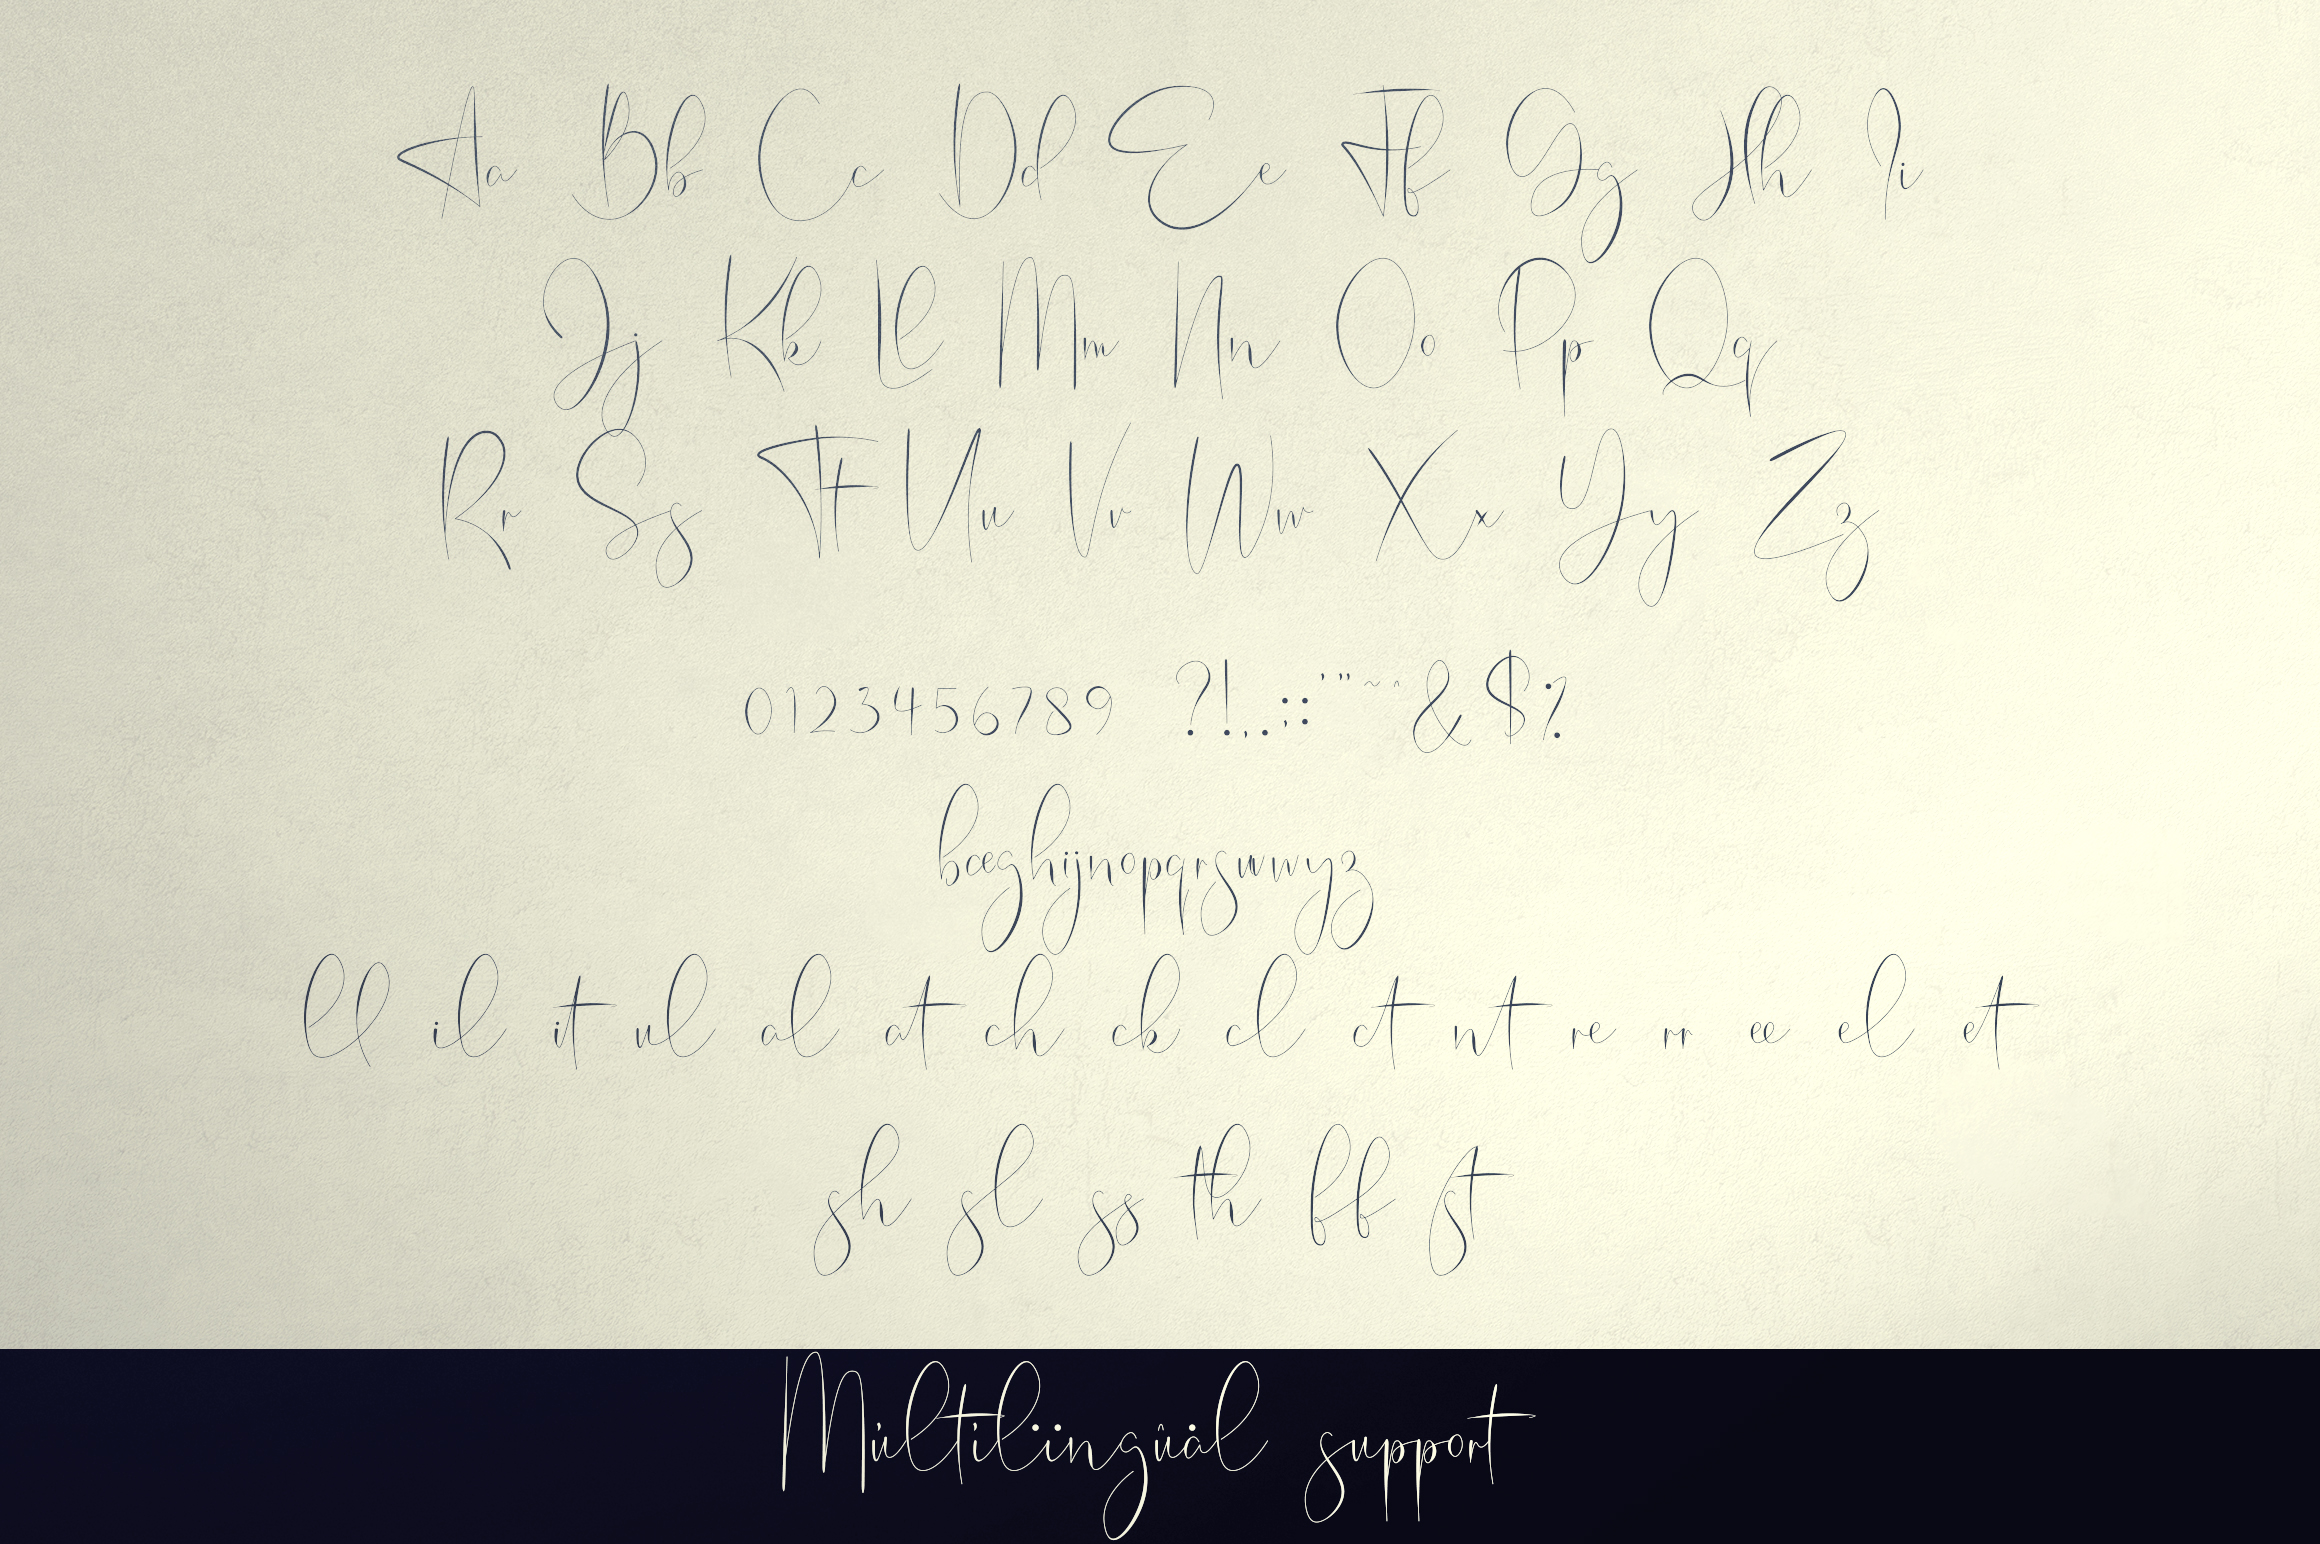 Aa Bb Cc Dd Ee Ff Gg Hh Ii
Jj Kk Ll Mm Nn Oo Pp Qq
Rr Ss Tt Uu Vv Ww Xx Yy Zz
0123456789 ?!,.;:'"~^&$%
bceghijnopqrsuvwyz
ll il it ul al at ch ck cl ct nt re rr ee el et
sh sl ss th ff st